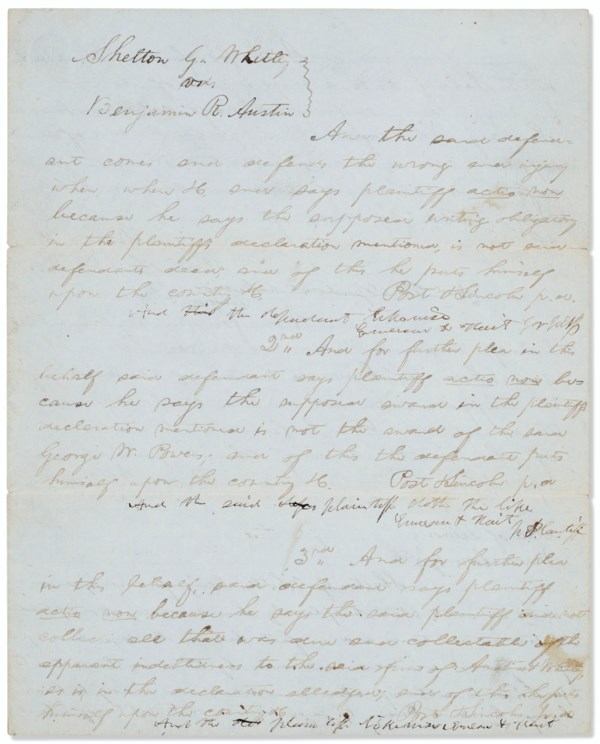 Shelton G. Whitley
vs
Benjamin R. Austin
And the said defend-
ant comes and defends the wrong and injury
when when &c. and says plaintiff actio non
because he says the supposed writing obligatory
in the plaintiffs declaration mentioned, is not said
defendants deed, and of this he puts himself
upon the country &c. Post & Lincoln p.d.
And the likewise
Emerson & Hait
2nd And for further plea in this
behalf said defendant says plaintiff actio non bec
cause he says the supposed award in the plaintiffs
declaration mentioned is not the award of the said
George W. and of this the defendant puts
himself upon the country &c. Post & Lincoln p.d.
And the said plaintiff doth the like
Emerson & Hait
p. Plaintiff
3rd And for further plea
in this behalf said defendant says plaintiff
actio non because he says the said plaintiff did not
collect all that was due and collectable of the
apparent indebtedness to the said firm of Austin &
as is in the declaration alledged, and of this he puts
himself upon the country &c. Post & Lincoln p.d.
And the plaintiff likewise Emerson & Hait